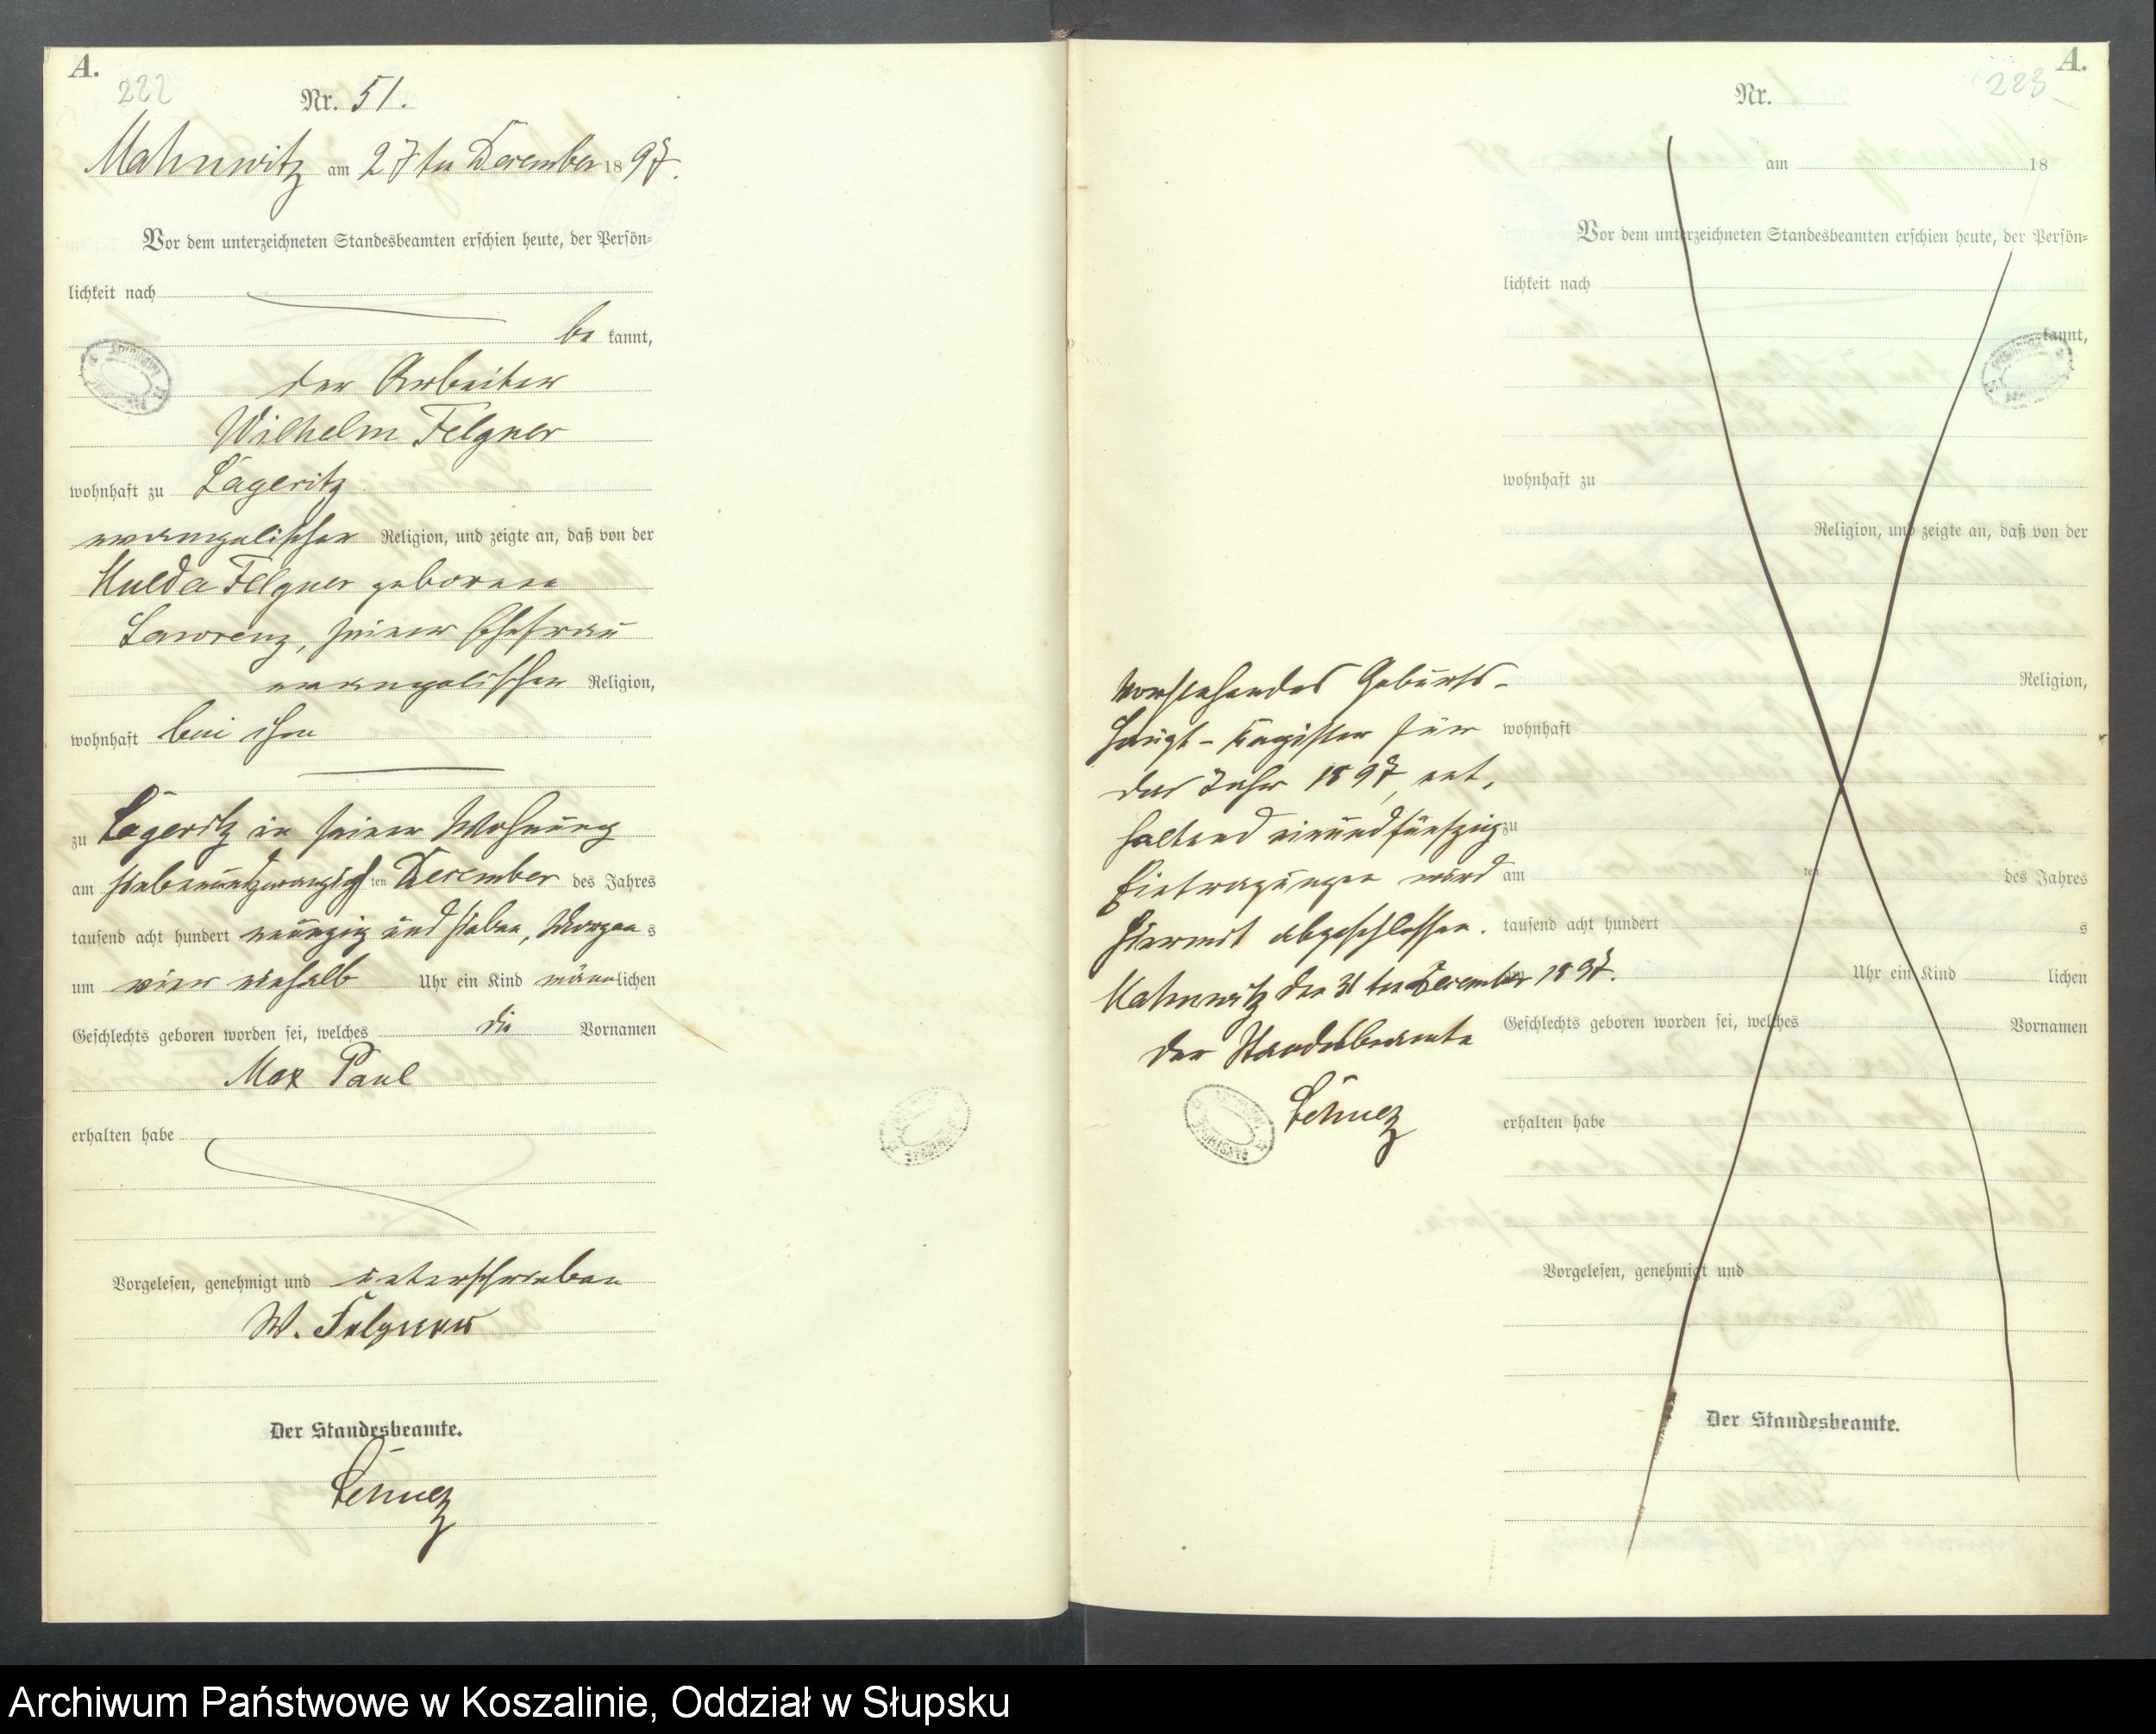 A.
222
Nr. 51.
Mahnwitz am 27ten December 1897.
Vor dem unterzeichneten Standesbeamten erschien heute, der Persön-
lichkeit nach
be kannt,
der Arbeiter
Wilhelm Felgner
wohnhaft zu Lägeritz
evangelischer Religion, und zeigte an, daß von der
Hulda Felgner geborene
Lawrenz, seiner Ehefrau
evangelischer Religion,
wohnhaft bei ihm
zu Lägeritz in seiner Wohnung
am siebenundzwanzigsten December des Jahres
tausend acht hundert neunzig und sieben, Morgens
um vier einhalb Uhr ein Kind männlichen
Geschlechts geboren worden sei, welches die Vornamen
Max Paul
erhalten habe
Vorgelesen, genehmigt und unterschrieben
W. Felgner
Der Standesbeamte.
A.
223
Nr.
am 18
Vor dem unterzeichneten Standesbeamten erschien heute, der Persön-
lichkeit nach
kannt,
wohnhaft zu
Religion, und zeigte an, daß von der
Religion,
wohnhaft
zu
am ten des Jahres
tausend acht hundert s
Uhr ein Kind lichen
Geschlechts geboren worden sei, welches Vornamen
erhalten habe
Vorgelesen, genehmigt und
Der Standesbeamte.
Vorstehendes Geburts-
Haupt-Register für
das Jahr 1897, ent-
haltend einundfünfzig
Eintragungen wird
hiermit abgeschlossen.
Mahnwitz den 31ten December 1897.
Der Standesbeamte
Archiwum Państwowe w Koszalinie, Oddział w Słupsku